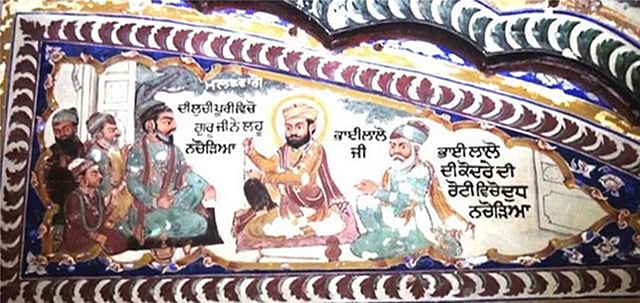 ਦੀਲੁਚੀ ਪੂਰੀਵਿਚੋ
ਗੁਰੂ ਜੀਨੇ ਲਹੂ
ਨਚੋੜਿਆ
ਭਾਈਲਾਲੋ
ਜੀ
ਭਾਈ ਲਾਲੋ
ਦੀ ਕੋਦਰੇ ਦੀ
ਰੋਟੀ ਵਿਚੋ ਦੁਧ
ਨਚੋੜਿਆ